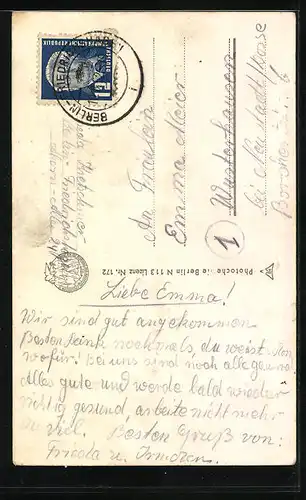 BERLIN-FRIEDRICH
12
DEUTSCHE DEMOKRATISCHE REPUBLIK
An Fräulein
Emma Meier
Wusterhausen
bei Neustadt/Dosse
1
Photochemie Berlin N 113 Lizenz Nr. 172
Liebe Emma!
Wir sind gut angekommen
Besten Dank nochmals, du weist schon
wofür! Bei uns sind noch alle gesund
Alles gute und werde bald wieder
richtig gesund, arbeite nicht mehr
zu viel. Besten Gruß von:
Frieda u.